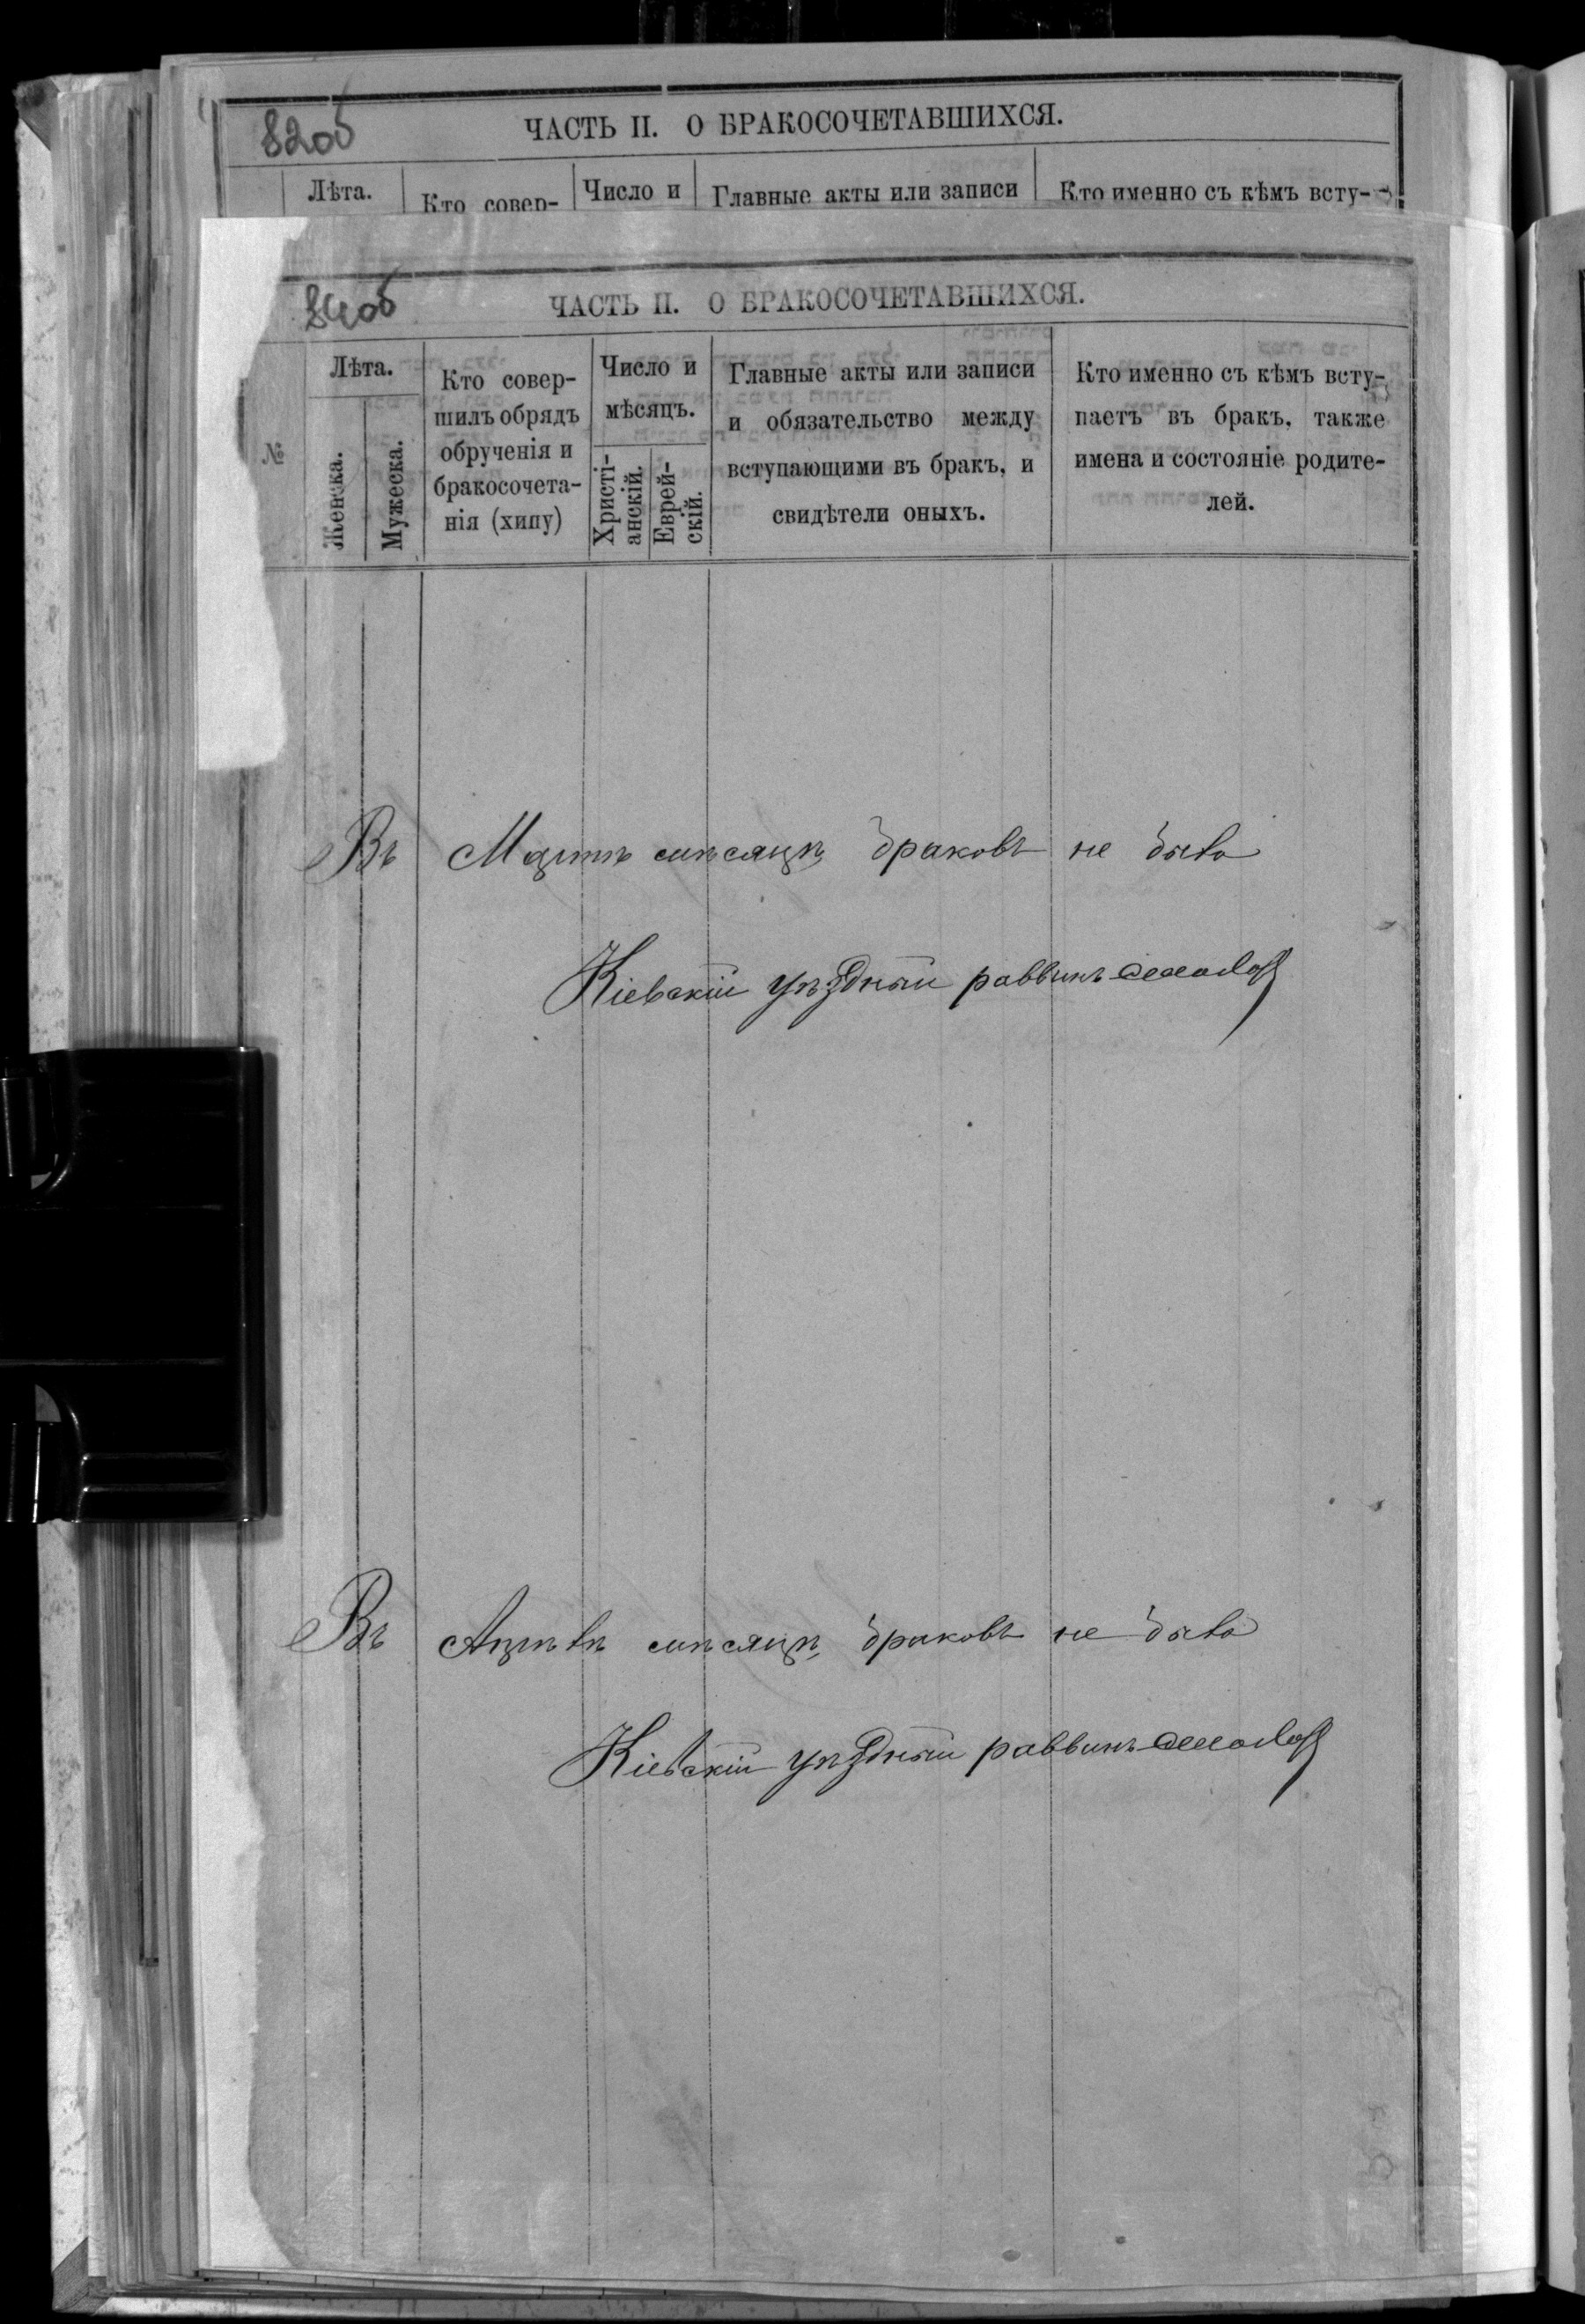 82об
ЧАСТЬ II. О БРАКОСОЧЕТАВШИХСЯ.
Лѣта.
Кто совер-
Число и
Главные акты или записи
Кто именно съ кѣмъ всту-
84об
ЧАСТЬ II. О БРАКОСОЧЕТАВШИХСЯ.
№
Лѣта.
Женска.
Мужеска.
Кто совер-
шилъ обрядъ
обрученія и
бракосочета-
нія (хипу)
Число и
мѣсяцъ.
Христі-
анскій.
Еврей-
скій.
Главные акты или записи
и обязательство между
вступающими въ бракъ, и
свидѣтели оныхъ.
Кто именно съ кѣмъ всту-
паетъ въ бракъ, также
имена и состояніе родите-
лей.
Въ Мартѣ мѣсяцѣ браковъ не было
Кіевскій уѣздный раввинъ
Въ Апрѣлѣ мѣсяцѣ браковъ не было
Кіевскій уѣздный раввинъ